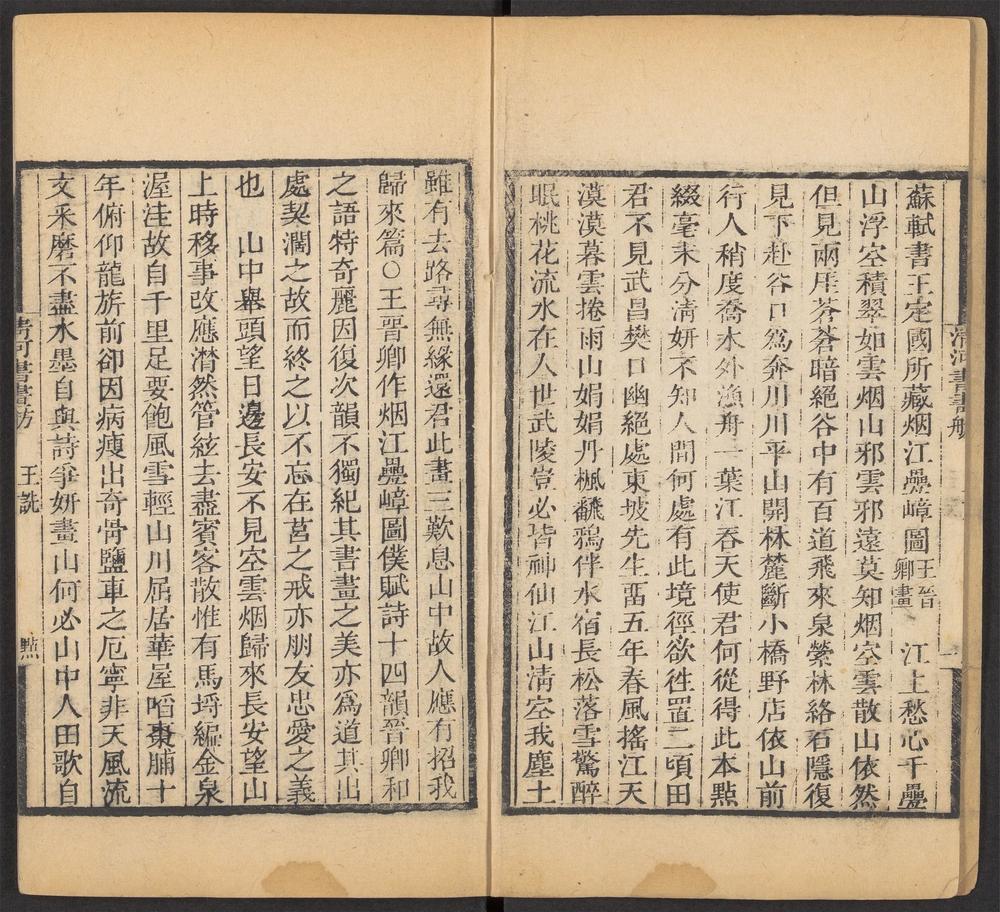 清河書畫舫
蘇軾書王定國所藏烟江疊嶂圖王晉卿畫　江上愁心千疊
山浮空積翠如雲烟山邪雲邪遠莫知烟空雲散山依然
但見兩厓蒼蒼暗絕谷中有百道飛來泉縈林絡石隱復
見下赴谷口爲奔川川平山開林麓斷小橋野店依山前
行人稍度喬木外漁舟一葉江吞天使君何從得此本點
綴毫末分淸妍不知人間何處有此境徑欲徃置二頃田
君不見武昌樊口幽絕處東坡先生畱五年春風搖江天
漠漠暮雲捲雨山娟娟丹楓飜鴉伴水宿長松落雪驚醉
眠桃花流水在人世武陵豈必皆神仙江山淸空我塵土
雖有去路尋無緣還君此畫三歎息山中故人應有招我
歸來篇○王晉卿作烟江疊嶂圖僕賦詩十四韻晉卿和
之語特奇麗因復次韻不獨紀其書畫之美亦爲道其出
處契濶之故而終之以不忘在莒之戒亦朋友忠愛之義
也　山中舉頭望日邊長安不見空雲烟歸來長安望山
上時移事改應潸然管絃去盡賓客散惟有馬埒編金泉
渥洼故自千里足要飽風雪輕山川屈居華屋啗棗脯十
年俯仰龍旂前卻因病瘦出奇骨鹽車之厄寧非天風流
文釆磨不盡水墨自與詩爭妍畫山何必山中人田歌自
清河書畫舫　王詵